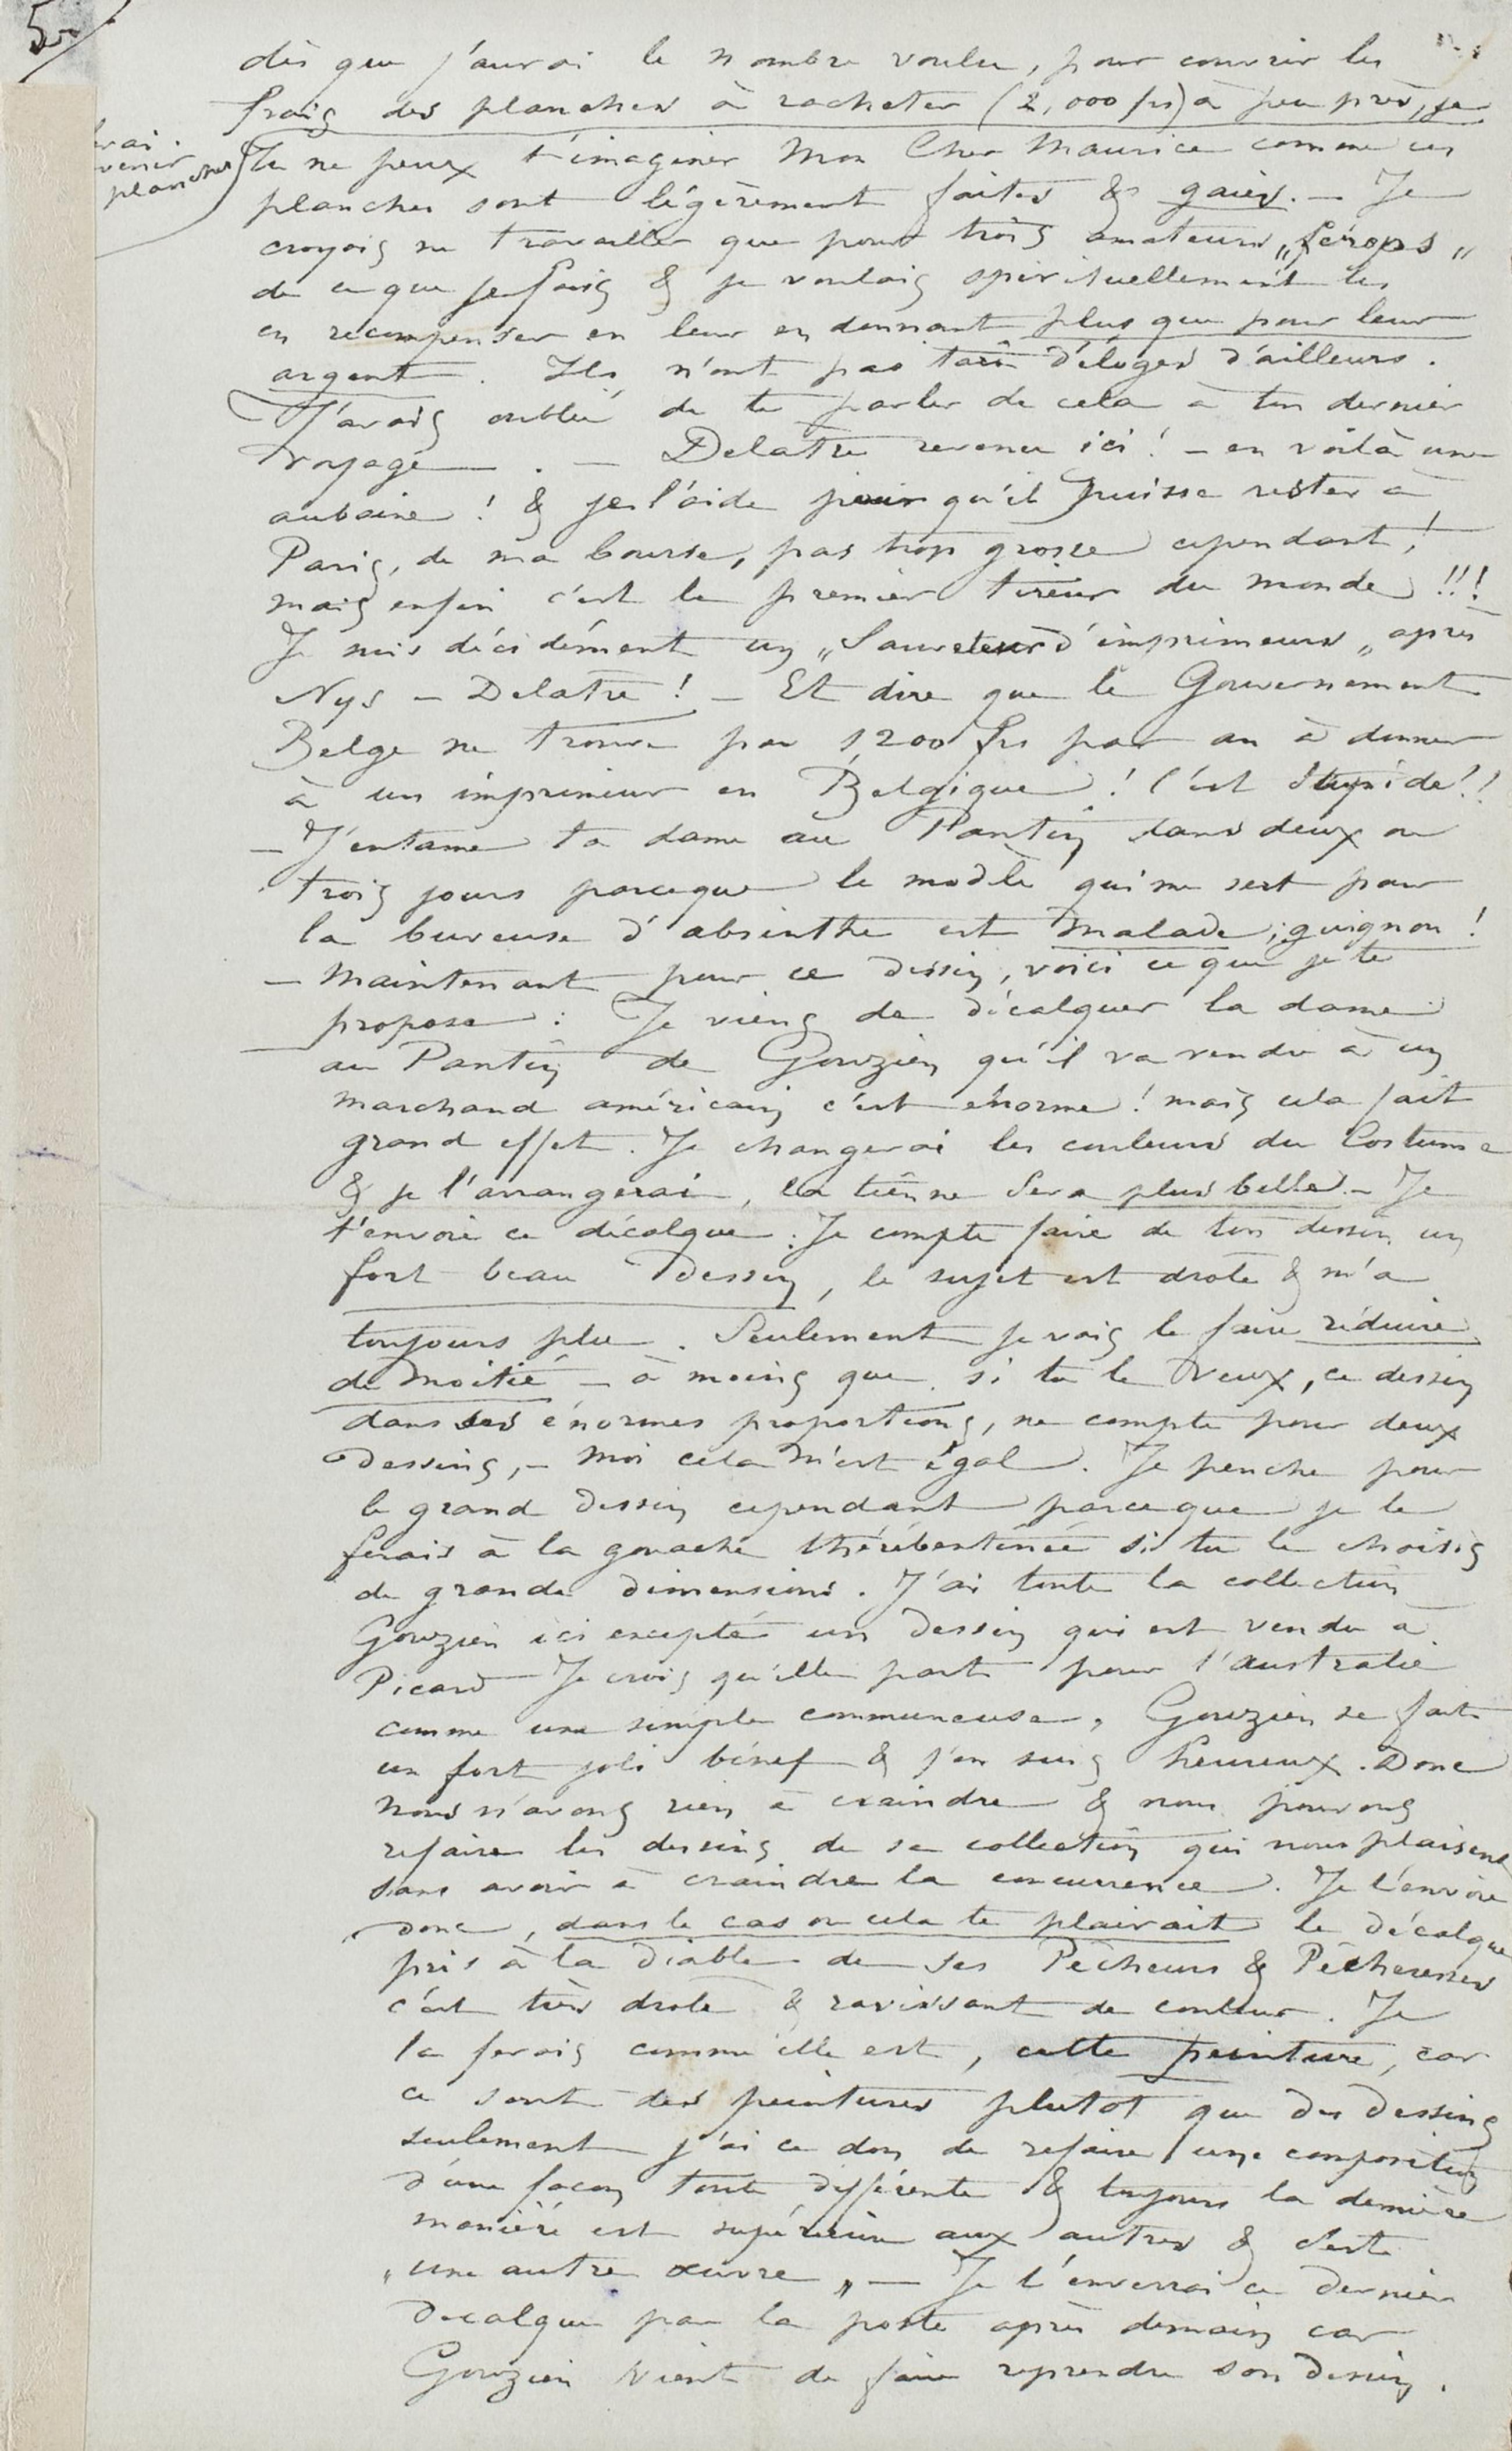 5
dès que j'aurai le nombre voulu, pour couvrir les
frais des planches à racheter (2,000 frs) à peu près, je
rai
venir
planches
Tu ne peux t'imaginer Mon Cher Maurice comme ces
planches sont légèrement faites & gaies. — Je
croyais ne travailler que pour trois amateurs „férops„
de ce que je fais & je voulais spirituellement les
en recompenser en leur en donnant plus que pour leur
argent. Ils n'ont pas tari d'éloges d'ailleurs.
J'avais oublié de te parler de cela à ton dernier
voyage. — Delatre revenu ici ! — en voilà une
aubaine ! & je l'aide pour qu'il puisse rester à
Paris, de ma bourse, pas trop grosse cependant !
mais enfin c'est le premier tireur du monde !!!
Je suis décidément un „Sauveteur d'imprimeurs„ après
Nys — Delatre ! — Et dire que le Gouvernement
Belge ne trouve pas 1200 frs par an à donner
à un imprimeur en Belgique ! C'est stupide !!
— J'entame ta dame au Pantin dans deux ou
trois jours parceque le modèle qui me sert pour
la buveuse d'absinthe est malade, guignon !
— Maintenant pour ce dessin, voici ce que je te
propose : Je viens de décalquer la dame
au Pantin de Gouzien qu'il va vendre à un
marchand américain c'est énorme ! mais cela fait
grand effet. Je changerai les couleurs du Costume
& je l'arrangerai, la tienne sera plus belle — Je
t'envoie ce décalque. Je compte faire de ton dessin un
fort beau dessin, le sujet est drole & m'a
toujours plu. Seulement je vais le faire réduire
de moitié — à moins que si tu le veux, ce dessin
dans ses énormes proportions, ne compte pour deux
dessins, — moi cela m'est égal. Je penche pour
le grand dessin cependant parceque je le
ferais à la gouache thérébentinée si tu le choisis
de grande dimensions. J'ai toute la collection
Gouzien ici excepté un dessin qui est vendu à
Picard Je crois qu'elle part pour l'australie
comme une simple communeuse, Gouzien se fait
un fort joli bénef & j'en suis heureux. Donc
nous n'avons rien à craindre & nous pouvons
refaire les dessins de sa collection qui nous plaisent
sans avoir à craindre la concurrence. Je t'envoie
donc, dans le cas ou cela te plairait le décalque
pris à la diable de ses Pêcheurs & Pêcheuses
c'est très drole & ravissant de couleur. Je
la ferais comme elle est, cette peinture, car
ce sont des peintures plutot que des dessins
seulement j'ai ce don de refaire une composition
d'une façon toute différente & toujours la dernière
manière est supérieure aux autres & c'est
„une autre œuvre„ — Je t'enverrai ce dernier
decalque par la poste après demain car
Gouzien vient de faire reprendre son dessin.